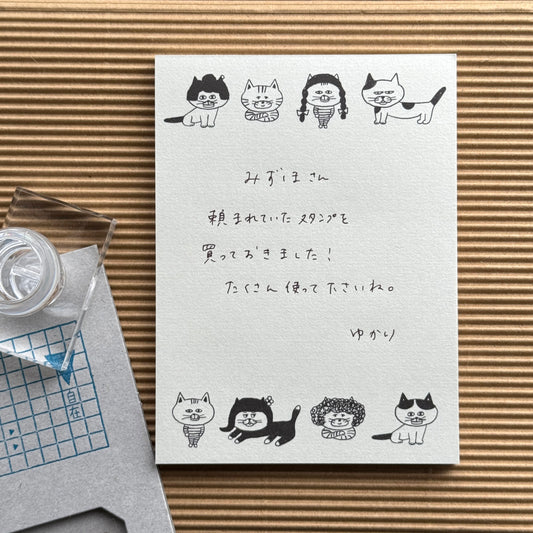 みずほさん
頼まれていたスタンプを
買っておきました！
たくさん使って下さいね。
ゆかり
自在